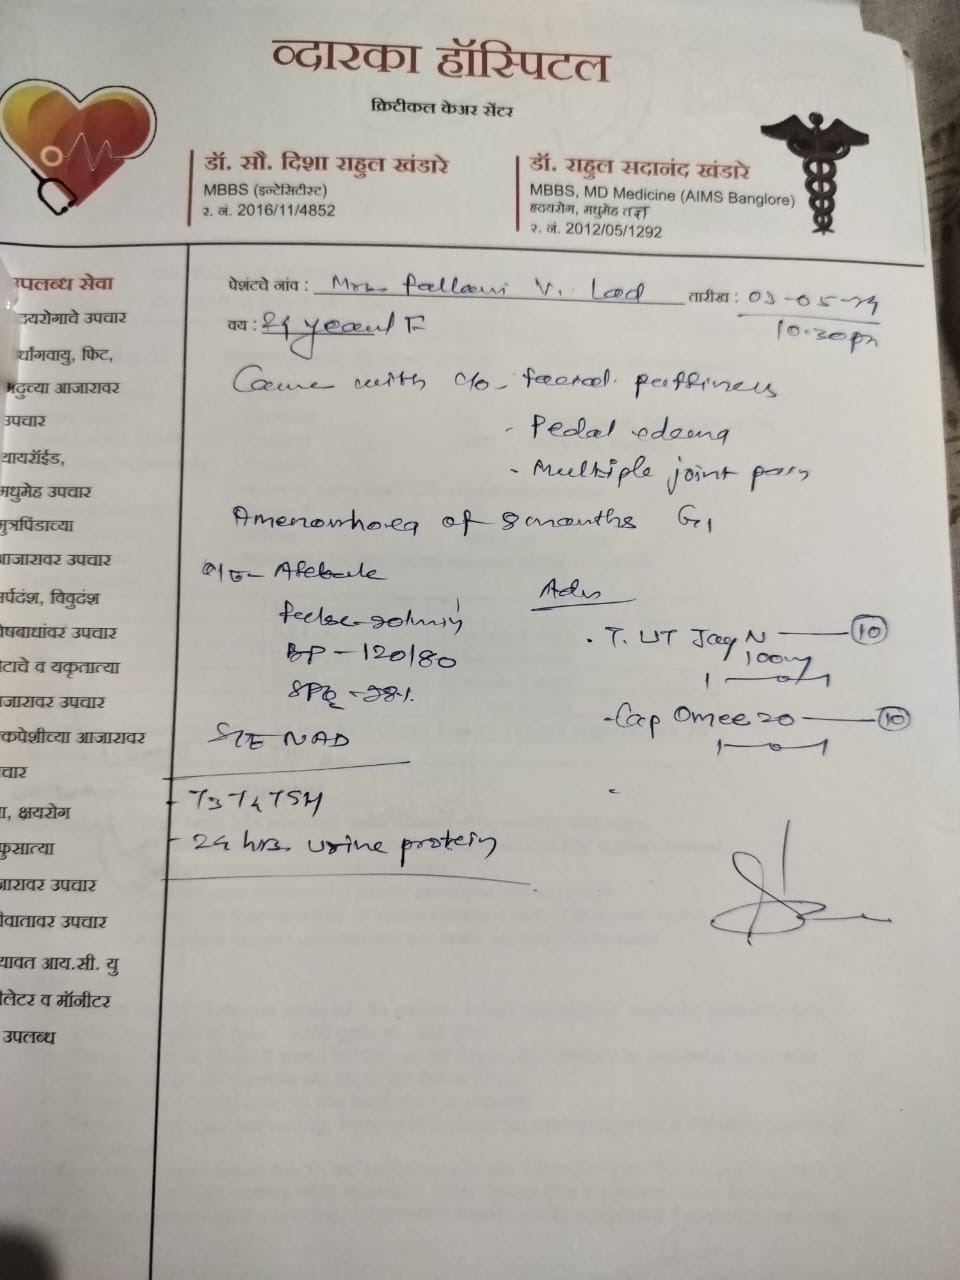 व्दारका हॉस्पिटल
क्रिटीकल केअर सेंटर
डॉ. सौ. दिशा राहुल खंडारे
MBBS (इन्टेसिटीस्ट)
र. नं. 2016/11/4852
डॉ. राहुल सदानंद खंडारे
MBBS, MD Medicine (AIMS Banglore)
हृदयरोग, मधुमेह तज्ञ
र. नं. 2012/05/1292
पेशंटचे नांव : Mrs. Pallavi V. Lad तारीख : 03-05-24
वय : 24 years/ F 10.30pm
Came with c/o - facial puffiness
- Pedal edema
- Multiple joint pain
Amenorrhoea of 8 months G1
O/E- Afebrile
Pulse-
BP - 120/80
SPO2 - 98%
S/E NAD
- T3 T4 TSH
- 24 hrs. urine protein
Adv
. T. UT Jag N 10
100mg
1 — 0 — 1
- Cap Omee 20 10
1 — 0 — 1
उपलब्ध सेवा
हृदयरोगाचे उपचार
र्धांगवायु, फिट,
मेंदुच्या आजारावर
उपचार
थायरॉईड,
मधुमेह उपचार
मुत्रपिंडाच्या
आजारावर उपचार
सर्पदंश, विंचुदंश
विषबाधांवर उपचार
पोटाचे व यकृताच्या
आजारावर उपचार
आजारावर
चार
, क्षयरोग
फुसाच्या
जारावर उपचार
वातावर उपचार
यावत आय.सी. यु
व मॉनीटर
उपलब्ध